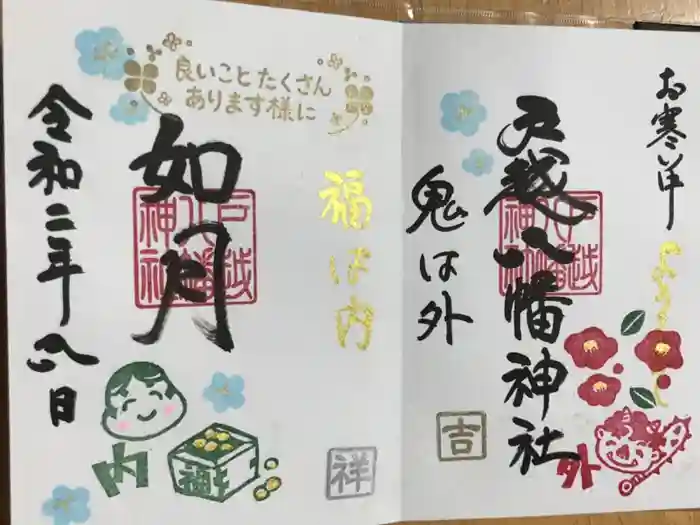 お寒い中
戸越八幡神社
戸越
八幡
神社
外
鬼は外
吉
福は内
祥
良いことたくさん
あります様に
如月
戸越
八幡
神社
令和二年八日
内
福